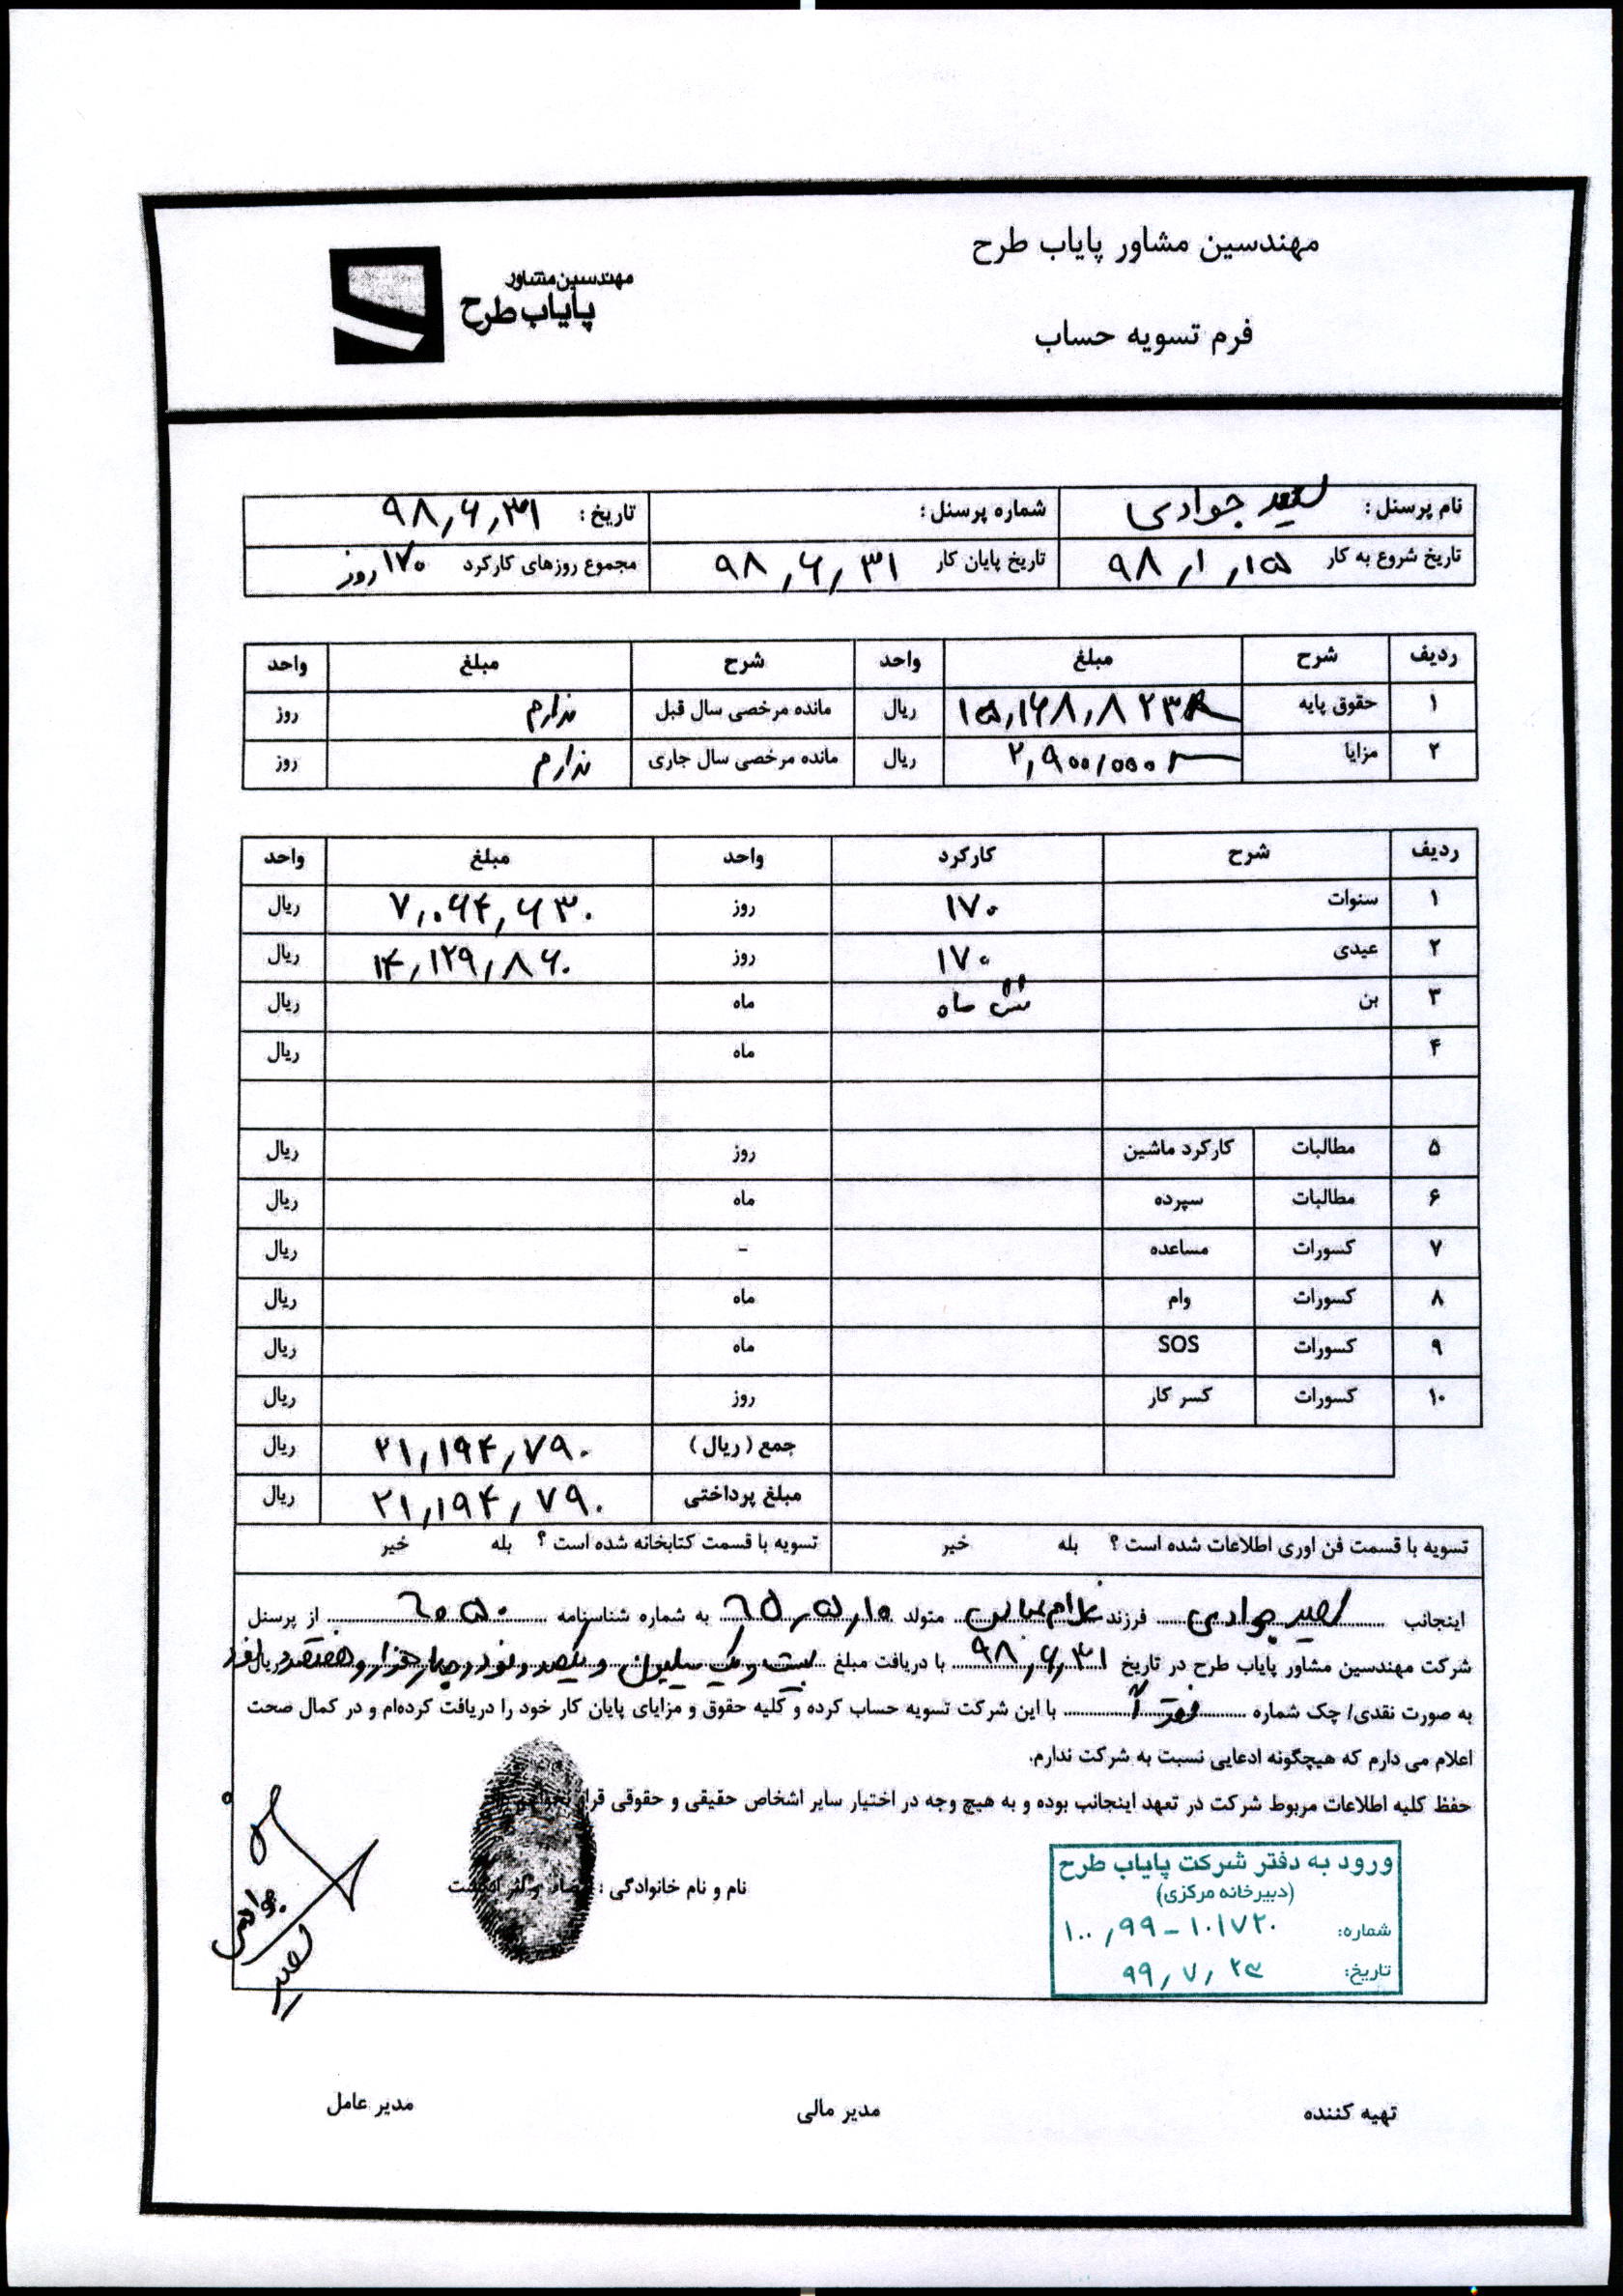 مهندسین مشاور پایاب طرح
مهندسین مشاور
پایاب طرح
فرم تسویه حساب
نام پرسنل : سعید جوادی شماره پرسنل : تاریخ : ۹۸,۶,۳۱
تاریخ شروع به کار ۹۸,۱,۱۵ تاریخ پایان کار ۹۸,۶,۳۱ مجموع روزهای کارکرد ۱۷۰ روز
ردیف شرح مبلغ واحد شرح مبلغ واحد
۱ حقوق پایه ۱۵,۱۶۸,۸۲۳ ریال مانده مرخصی سال قبل ندارم روز
۲ مزایا ۲,۹۰۰,۰۰۰ ریال مانده مرخصی سال جاری ندارم روز
ردیف شرح کارکرد واحد مبلغ واحد
۱ سنوات ۱۷۰ روز ۷,۰۶۴,۶۳۰ ریال
۲ عیدی ۱۷۰ روز ۱۴,۱۲۹,۸۶۰ ریال
۳ بن شش ماه ماه ریال
۴ ماه ریال
۵ مطالبات کارکرد ماشین روز ریال
۶ مطالبات سپرده ماه ریال
۷ کسورات مساعده - ریال
۸ کسورات وام ماه ریال
۹ کسورات SOS ماه ریال
۱۰ کسورات کسر کار روز ریال
جمع ( ریال ) ۲۱,۱۹۴,۷۹۰ ریال
مبلغ پرداختی ۲۱,۱۹۴,۷۹۰ ریال
تسویه با قسمت فن اوری اطلاعات شده است ؟ بله خیر تسویه با قسمت کتابخانه شده است ؟ بله خیر
اینجانب سعید جوادی فرزند متولد ۶۵,۵,۱۰ به شماره شناسنامه ۶۰۵۰ از پرسنل
شرکت مهندسین مشاور پایاب طرح در تاریخ ۹۸,۶,۳۱ با دریافت مبلغ بیست و یک میلیون و یکصد و نود و چهار هزار و هفتصد و نود ریال
به صورت نقدی/ چک شماره با این شرکت تسویه حساب کرده و کلیه حقوق و مزایای پایان کار خود را دریافت کرده‌ام و در کمال صحت
اعلام می دارم که هیچگونه ادعایی نسبت به شرکت ندارم.
حفظ کلیه اطلاعات مربوط شرکت در تعهد اینجانب بوده و به هیچ وجه در اختیار سایر اشخاص حقیقی و حقوقی قرار
نام و نام خانوادگی :
سعید جوادی
ورود به دفتر شرکت پایاب طرح
(دبیرخانه مرکزی)
شماره: ۱۰۰,۹۹-۱۰۱۷۲۰
تاریخ: ۹۹,۷,۲۳
تهیه کننده مدیر مالی مدیر عامل